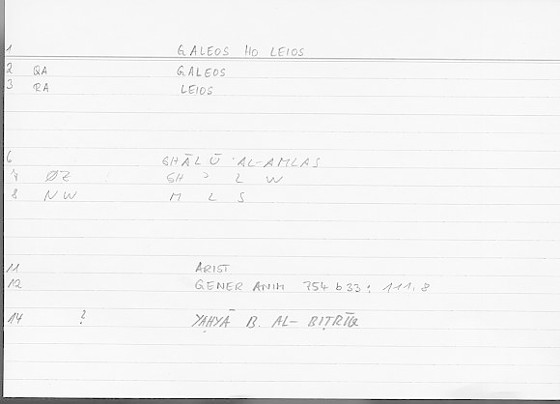 1 GALEOS HO LEIOS
2 QA GALEOS
3 RA LEIOS
6 GHĀLŪ 'AL-AMLAS
7 ØZ GH ʾ L W
8 NW M L S
11 ARIST
12 GENER ANIM 754 b 33 : 111.8
14 ? YAḤYĀ B. AL-BIṬRĪQ